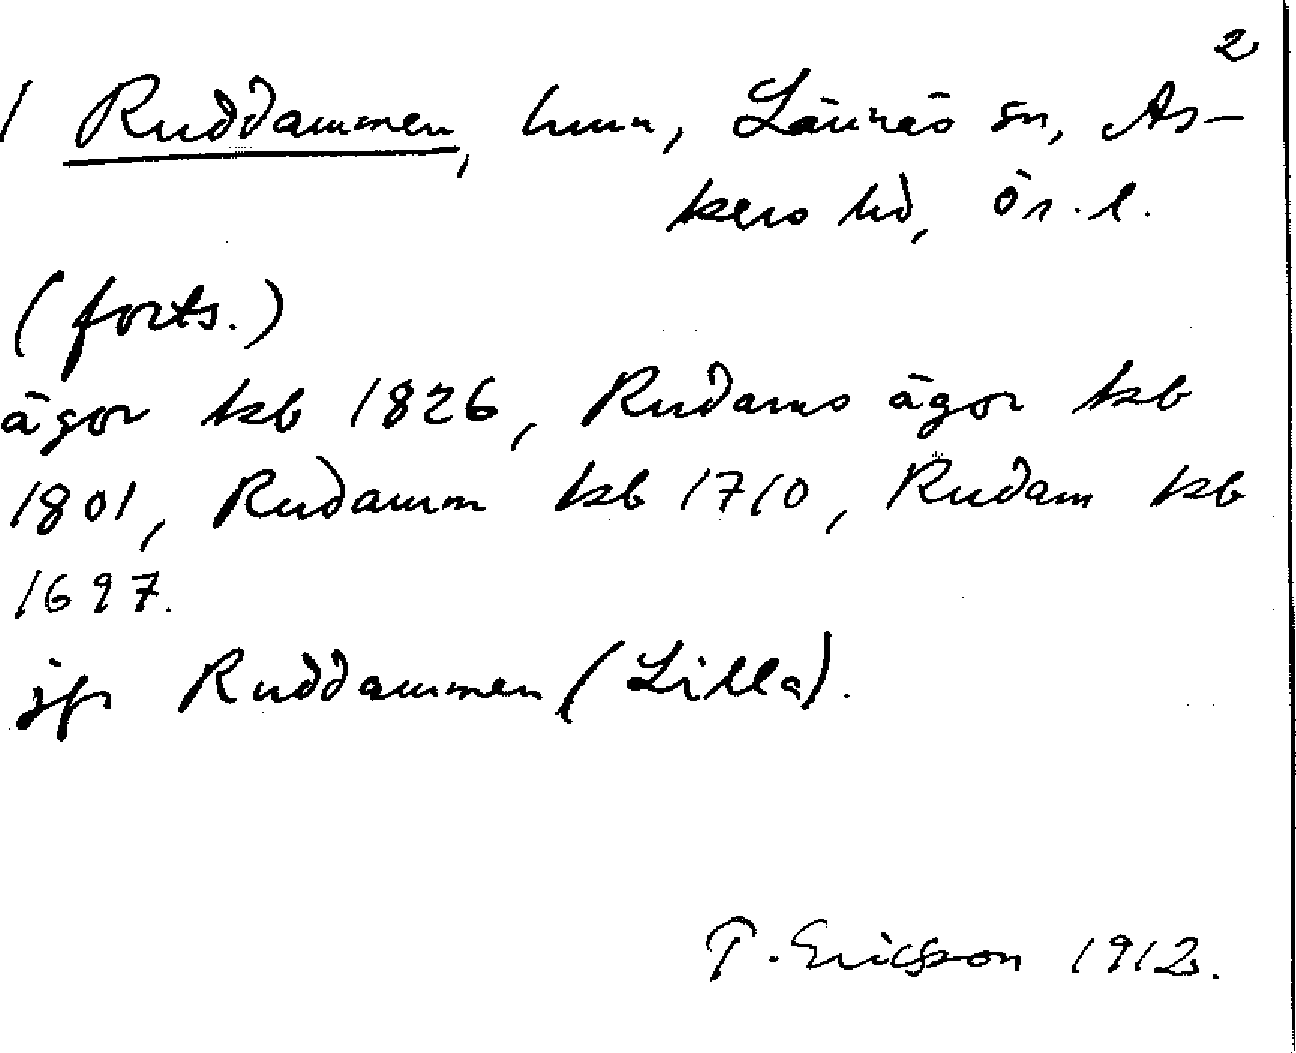 2
1 Ruddammen, hmn, Lännäs sn, As-
kers hd, Ör. l.
(forts.)
ägor kb 1826, Rudams ägor kb
1801, Rudamm kb 1710, Rudam kb
1697.
jfr Ruddammen (Lilla).
T. Ericsson 1912.